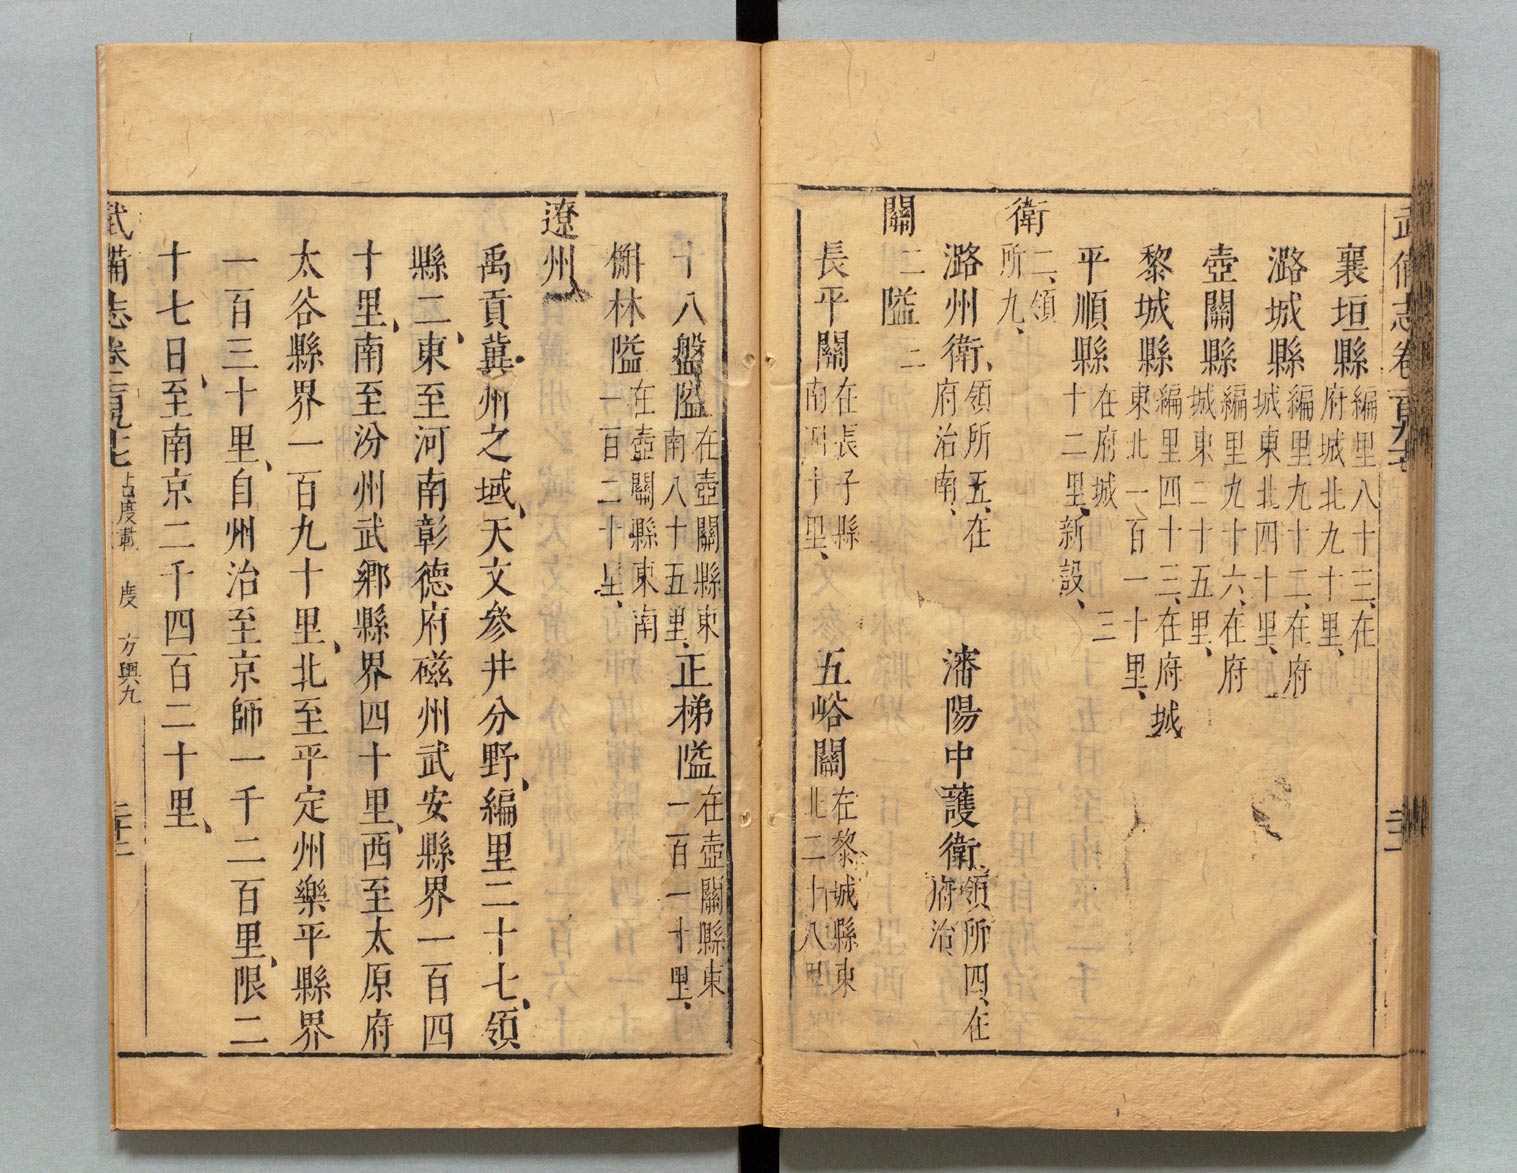 武備志卷
襄垣縣編里八十三、在府城北九十里、
潞城縣編里九十二、在府城東北四十里、
壺關縣編里九十六、在府城東二十五里、
黎城縣編里四十三、在府城東北一百一十里、
平順縣在府城三十二里、新設、
衛二、領所九、
潞州衛、領所五、在府治南、 瀋陽中護衛、領所四、在府治
關二隘三
長平關在長子縣南四十里、 五峪關在黎城縣東北二十八里
十八盤隘在壺關縣東南八十五里、正梯隘在壺關縣東一百一十里、
槲林隘在壺關縣東南一百二十里、
遼州
禹貢冀州之域、天文參井分野、編里二十七、領
縣二、東至河南彰德府磁州武安縣界一百四
十里、南至汾州武鄉縣界四十里、西至太原府
太谷縣界一百九十里、北至平定州樂平縣界
一百三十里、自州治至京師一千二百里、限二
十七日、至南京二千四百二十里、
武備志卷 占度載 度 方輿九